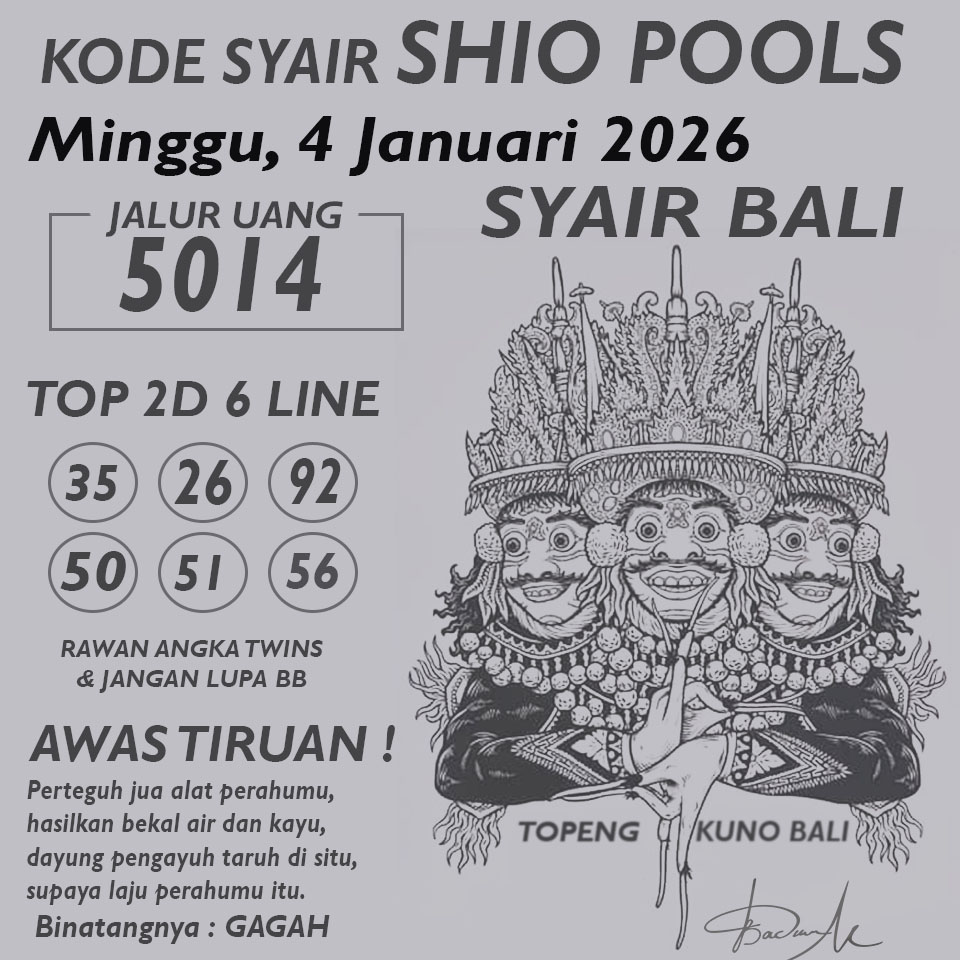 KODE SYAIR SHIO POOLS
Minggu, 4 Januari 2026
SYAIR BALI
JALUR UANG
5014
TOP 2D 6 LINE
35 26 92
50 51 56
RAWAN ANGKA TWINS
& JANGAN LUPA BB
AWAS TIRUAN !
Perteguh jua alat perahumu,
hasilkan bekal air dan kayu,
dayung pengayuh taruh di situ,
supaya laju perahumu itu.
Binatangnya : GAGAH
TOPENG KUNO BALI